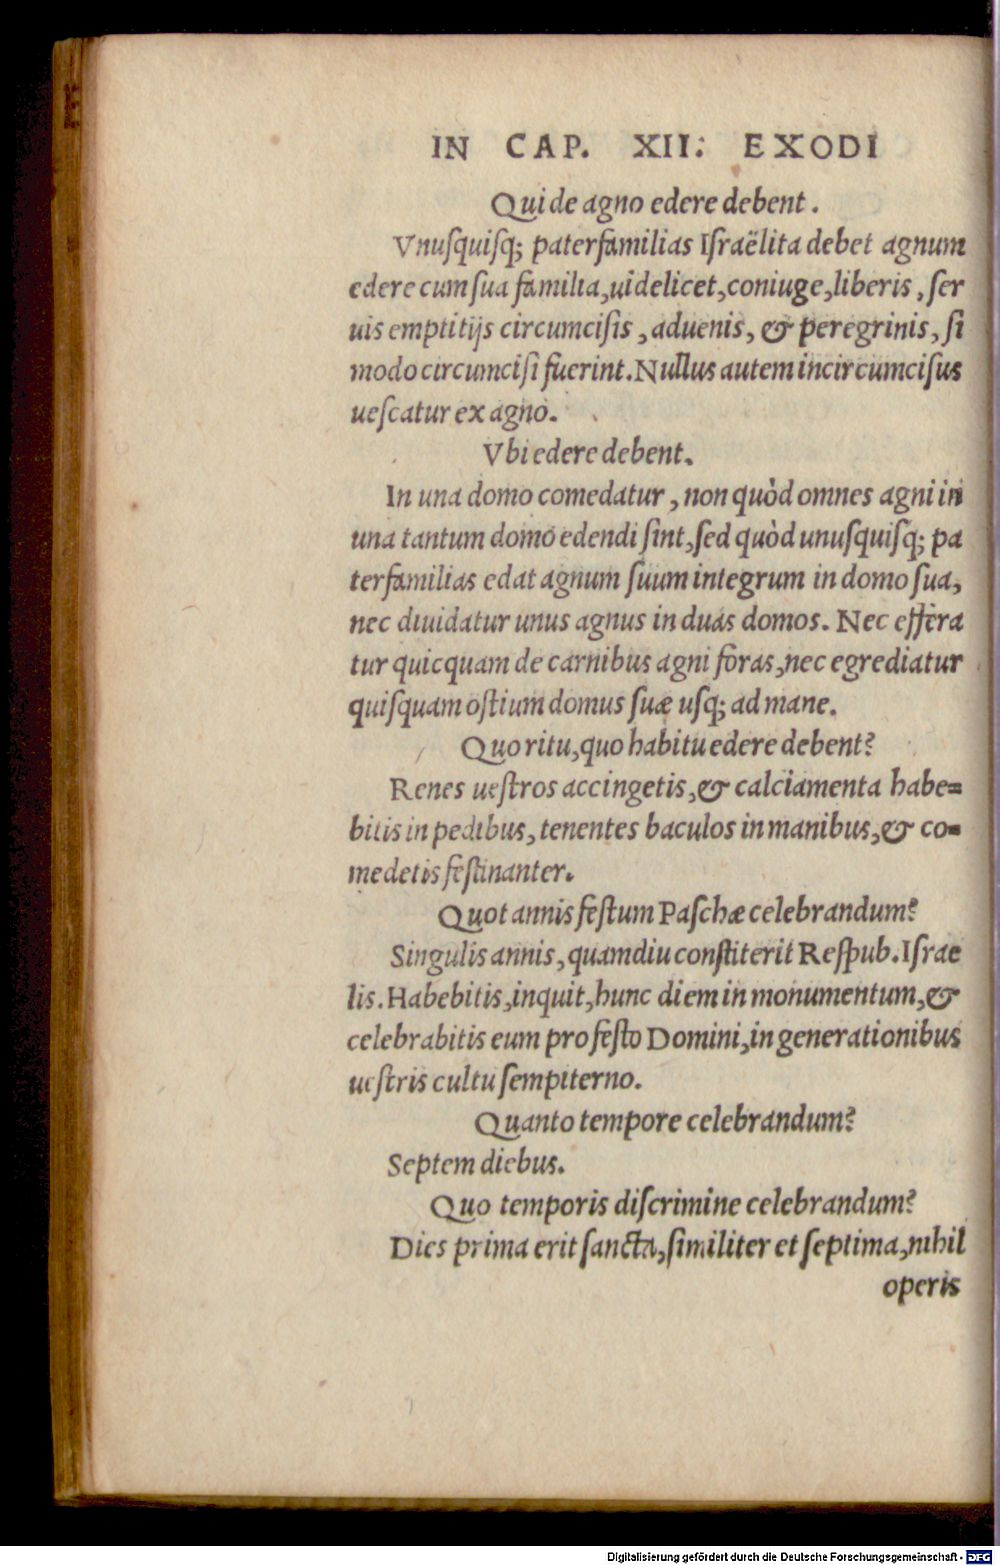 IN CAP. XII. EXODI
Qui de agno edere debent.
Vnuſquiſq; paterfamilias Iſraëlita debet agnum
edere cum ſua familia, uidelicet, coniuge, liberis, ſer
uis emptitijs circumciſis, aduenis, & peregrinis, ſi
modo circumciſi fuerint. Nullus autem incircumciſus
ueſcatur ex agno.
Vbi edere debent.
In una domo comedatur, non quòd omnes agni in
una tantum domo edendi ſint, ſed quòd unuſquiſq; pa
terfamilias edat agnum ſuum integrum in domo ſua,
nec diuidatur unus agnus in duas domos. Nec effera
tur quicquam de carnibus agni foras, nec egrediatur
quiſquam oſtium domus ſuæ uſq; ad mane.
Quo ritu, quo habitu edere debent?
Renes ueſtros accingetis, & calciamenta habe=
bitis in pedibus, tenentes baculos in manibus, & co=
medetis feſtinanter.
Quot annis feſtum Paſchæ celebrandum?
Singulis annis, quamdiu conſtiterit Reſpub. Iſrae
lis. Habebitis, inquit, hunc diem in monumentum, &
celebrabitis eum pro feſto Domini, in generationibus
ueſtris cultu ſempiterno.
Quanto tempore celebrandum?
Septem diebus.
Quo temporis diſcrimine celebrandum?
Dies prima erit ſancta, ſimiliter et ſeptima, nihil
operis
Digitalisierung gefördert durch die Deutsche Forschungsgemeinschaft - DFG